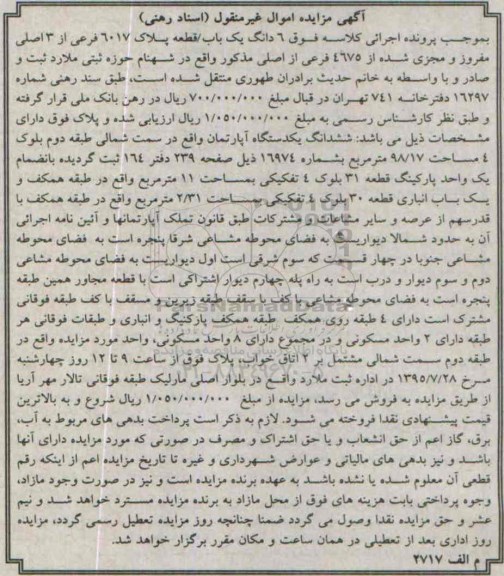 آگهی مزایده اموال غیرمنقول (اسناد رهنی)
بموجب پرونده اجرائی کلاسه فوق ۶ دانگ یک باب/قطعه پلاک ۶۰۱۷ فرعی از ۳ اصلی
مفروز و مجزی شده از ۴۶۷۵ فرعی از اصلی مذکور واقع در شهنام حوزه ثبتی ملارد ثبت و
صادر و با واسطه به خانم حدیث برادران طهوری منتقل شده است، طبق سند رهنی شماره
۱۶۲۹۷ دفترخانه ۷۴۱ تهران در قبال مبلغ ۷۰۰/۰۰۰/۰۰۰ ریال در رهن بانک ملی قرار گرفته
و طبق نظر کارشناس رسمی به مبلغ ۱/۰۵۰/۰۰۰/۰۰۰ ریال ارزیابی شده و پلاک فوق دارای
مشخصات ذیل می باشد: ششدانگ یکدستگاه آپارتمان واقع در سمت شمالی طبقه دوم بلوک
۴ مساحت ۹۸/۱۷ مترمربع بشماره ۱۶۹۷۴ ذیل صفحه ۲۳۹ دفتر ۱۶۴ ثبت گردیده بانضمام
یک واحد پارکینگ قطعه ۳۱ بلوک ۴ تفکیکی بمساحت ۱۱ مترمربع واقع در طبقه همکف و
یک باب انباری قطعه ۳۰ بلوک ۴ تفکیکی بمساحت ۲/۳۱ مترمربع واقع در طبقه همکف با
قدرسهم از عرصه و سایر مشاعات و مشترکات طبق قانون تملک آپارتمانها و آئین نامه اجرائی
آن به حدود شمالا دیواریست به فضای محوطه مشاعی شرقا پنجره است به فضای محوطه
مشاعی جنوبا در چهار قسمت که سوم شرقی است اول دیواریست به فضای محوطه مشاعی
دوم و سوم دیوار و درب است به راه پله چهارم دیوار اشتراکی است با قطعه مجاور همین طبقه
پنجره است به فضای محوطه مشاعی با کف با سقف طبقه زیرین و مسقف با کف طبقه فوقانی
مشترک است دارای ۴ طبقه روی همکف طبقه همکف پارکینگ و انباری و طبقات فوقانی هر
طبقه دارای ۲ واحد مسکونی و در مجموع دارای ۸ واحد مسکونی، واحد مورد مزایده واقع در
طبقه دوم سمت شمالی مشتمل بر ۲ اتاق خوابی پلاک فوق از ساعت ۹ تا ۱۲ روز چهارشنبه
مرخ ۱۳۹۵/۷/۲۸ در اداره ثبت ملارد واقع در بلوار اصلی مارلیک طبقه فوقانی تالار مهر آریا
از طریق مزایده به فروش می رسد، مزایده از مبلغ ۱/۰۵۰/۰۰۰/۰۰۰ ریال شروع و به بالاترین
قیمت پیشنهادی نقدا فروخته می شود. لازم به ذکر است پرداخت بدهی های مربوط به آب،
برق، گاز اعم از حق انشعاب و یا حق اشتراک و مصرف در صورتی که مورد مزایده دارای آنها
باشد و نیز بدهی های مالیاتی و عوارض شهرداری و غیره تا تاریخ مزایده اعم از اینکه رقم
قطعی آن معلوم شده یا نشده باشد به عهده برنده مزایده است و نیز در صورت وجود مازاد،
وجوه پرداختی بابت هزینه های فوق از محل مازاد به برنده مزایده مسترد خواهد شد و نیم
عشر و حق مزایده نقدا وصول می گردد ضمنا چنانچه روز مزایده تعطیل رسمی گردد، مزایده
روز اداری بعد از تعطیلی در همان ساعت و مکان مقرر برگزار خواهد شد.
م الف ۲۷۱۷